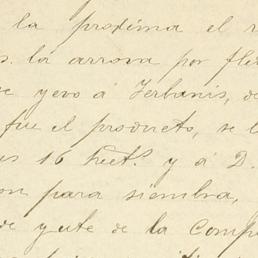 la proxima el r
s. la arrova por fle
e yevo á Jerbanis, de
fue el producto, se l
us 16 hect.s y á D.
on para siembra,
de yute de la Comp